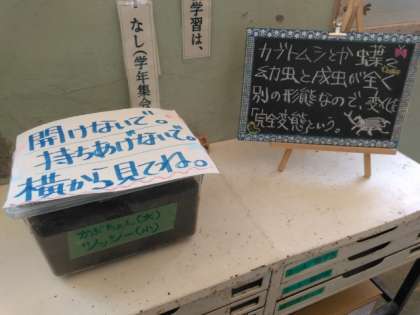 学習は、
なし(学年集会
カブトムシとか蝶
幼虫と成虫が全く
別の形態なので、変化を
完全変態という。
開けないで。
持ちあげないで。
横から見てね。
かぶちゃん(大)
リッシー(小)